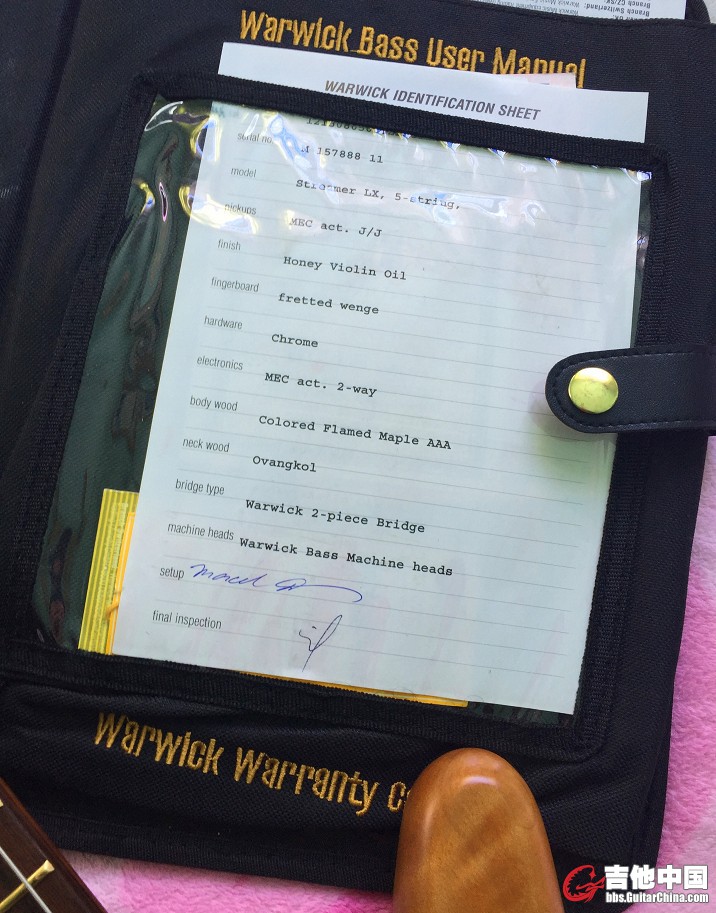 Branch CZ/SK:
Branch Switzerland:
Warwick Bass User Manual
WARWICK IDENTIFICATION SHEET
serial no
157888 11
model
Streamer LX, 5-string,
pickups
MEC act. J/J
finish
Honey Violin Oil
fingerboard
fretted wenge
hardware
Chrome
electronics
MEC act. 2-way
body wood
Colored Flamed Maple AAA
neck wood
Ovangkol
bridge type
Warwick 2-piece Bridge
machine heads
Warwick Bass Machine heads
setup
final inspection
Warwick Warranty
吉他中国
bbs.GuitarChina.com